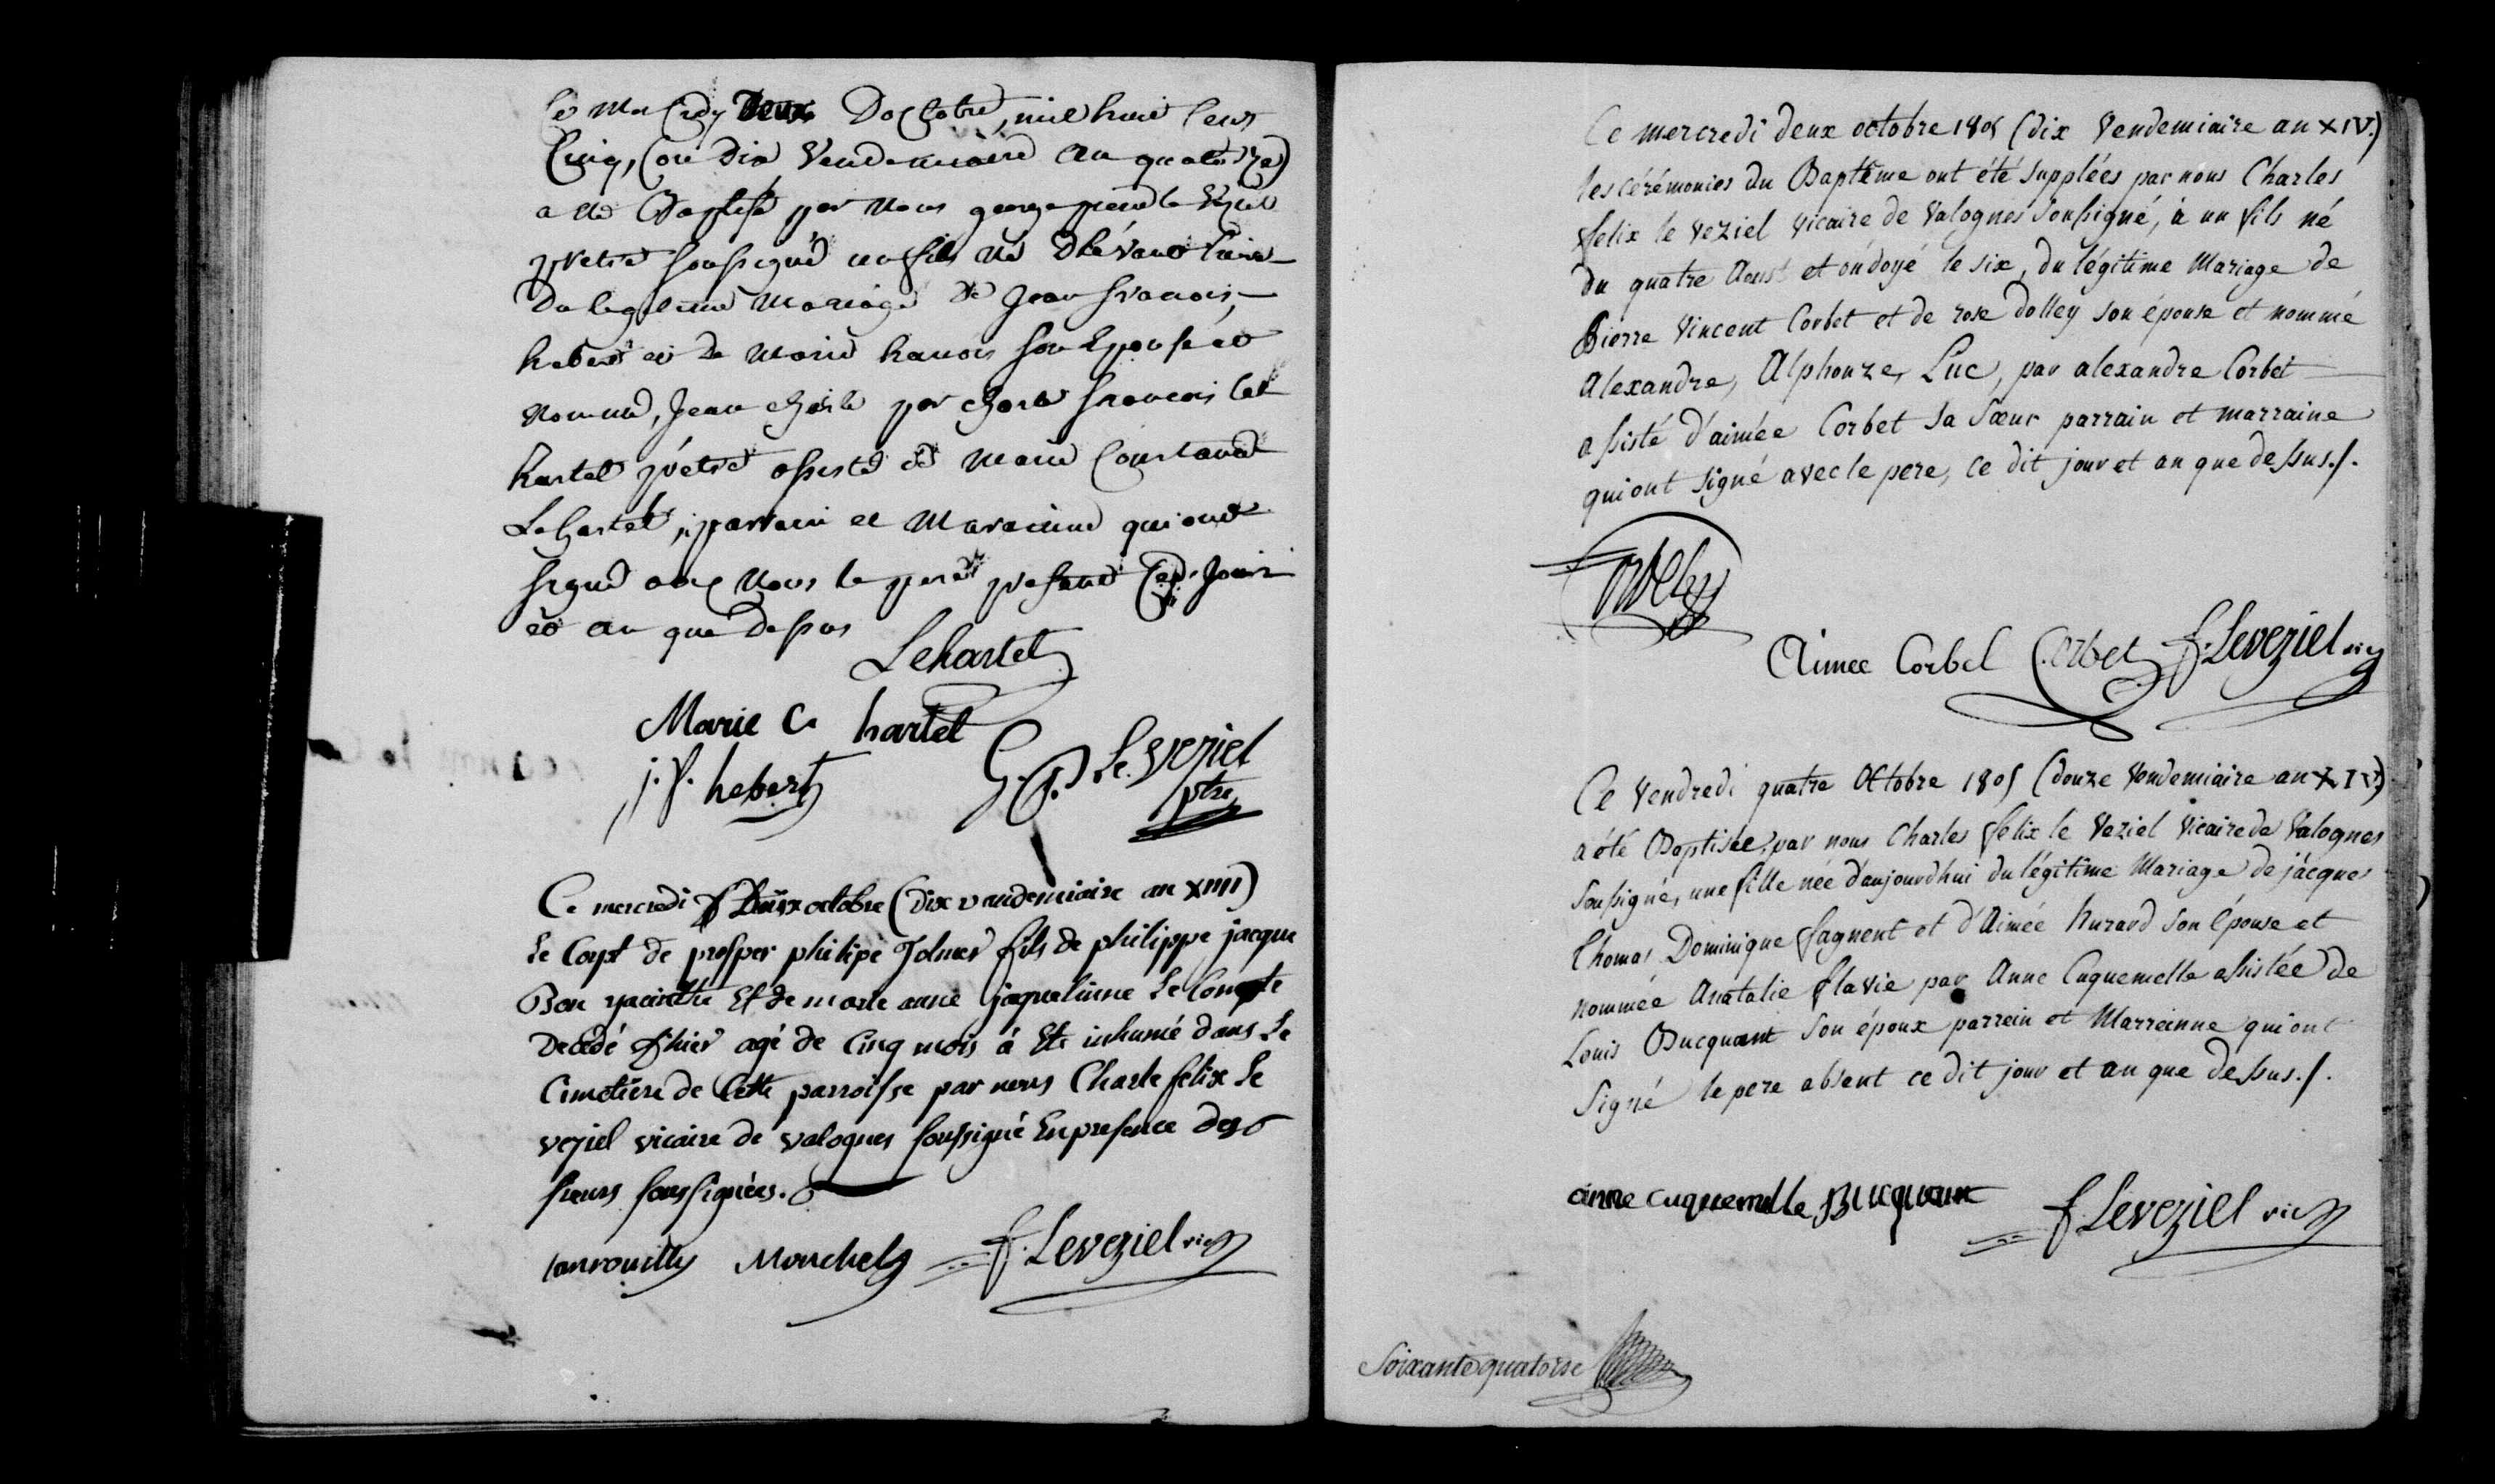 Ce Mercredy Deux Doctobre, mil huit Cent
Cinq, (ou dix Vendemiaire an quatorze)
a été Baptisé par Nous george pierre le Veziel
prêtre soussigné un fils né d'hévant hier
Du legitime Mariage de Jean francois
hebert et de Marie hauvis son Epouse et
Nommé, Jean charle par charle francois Le
hartel prêtre assisté de Marie Constance
Lehartel, parrain et Maraine qui ont
signé avec Nous le pere present Ced. Jour
et an que Dessus
Lehartel
Marie C. hartel
j. f. hebert G. P. Le Veziel
ptre
Ce mercredi Deux octobre (Dix vandemiaire an XIIII)
Le Corps de prosper philipe fils de philippe jacque
Bon yacinthe Et de marie anne jaqueline Le Compte
Decédé d'hier agé de Cinq mois á Eté inhumé dans Le
Cimetiere de Cette parroisse par nous Charle felix Le
veziel vicaire de valognes soussigné En presence des
sieurs soussignées.
Mouchel f. Leveziel vic
Ce mercredi deux octobre 1805 (dix Vendemiaire an XIV.)
les cérémonies du Baptême ont été Supplées par nous Charles
felix le Veziel Vicaire de Valognes Soussigné, à un fils né
du quatre Aoust et ondoyé le six, du légitime Mariage de
Pierre Vincent Corbet et de rose dolley son épouse et nommé
Alexandre, Alphonze, Luc, par alexandre Corbet
assisté d'aimée Corbet sa sœur parrain et marraine
qui ont signé avec le pere, ce dit jour et an que dessus./.
Aimee Corbet Corbet f. Leveziel vic
Ce Vendredi quatre Octobre 1805 (douze Vendemiaire an XIV.)
a été Baptisée, par nous Charles felix le Veziel Vicaire de Valognes
Soussigné, une fille née d'aujourdhui du légitime Mariage de jacques
Thomas Dominique fagnent et d'Aimée hurard son épouse et
nommée Anatalie flavie par Anne Cuquemelle assistée de
Louis Bucquant son époux parrein et Marreinne qui ont
Signé le pere absent ce dit jour et an que dessus./.
anne cuquemelle Bucquant f Leveziel vic
Soixante quatorse